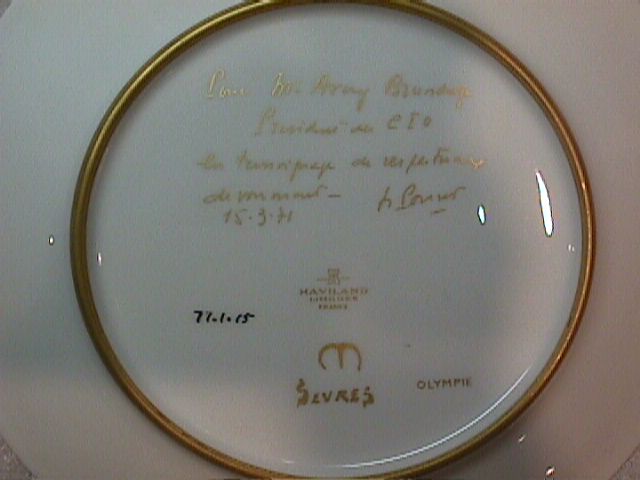 Pour Mr Avery Brundage
Président du CIO
En témoignage de respectueux
dévouement -
15.3.71
HAVILAND
LIMOGES
FRANCE
77.1.15
SEVRES
OLYMPIE